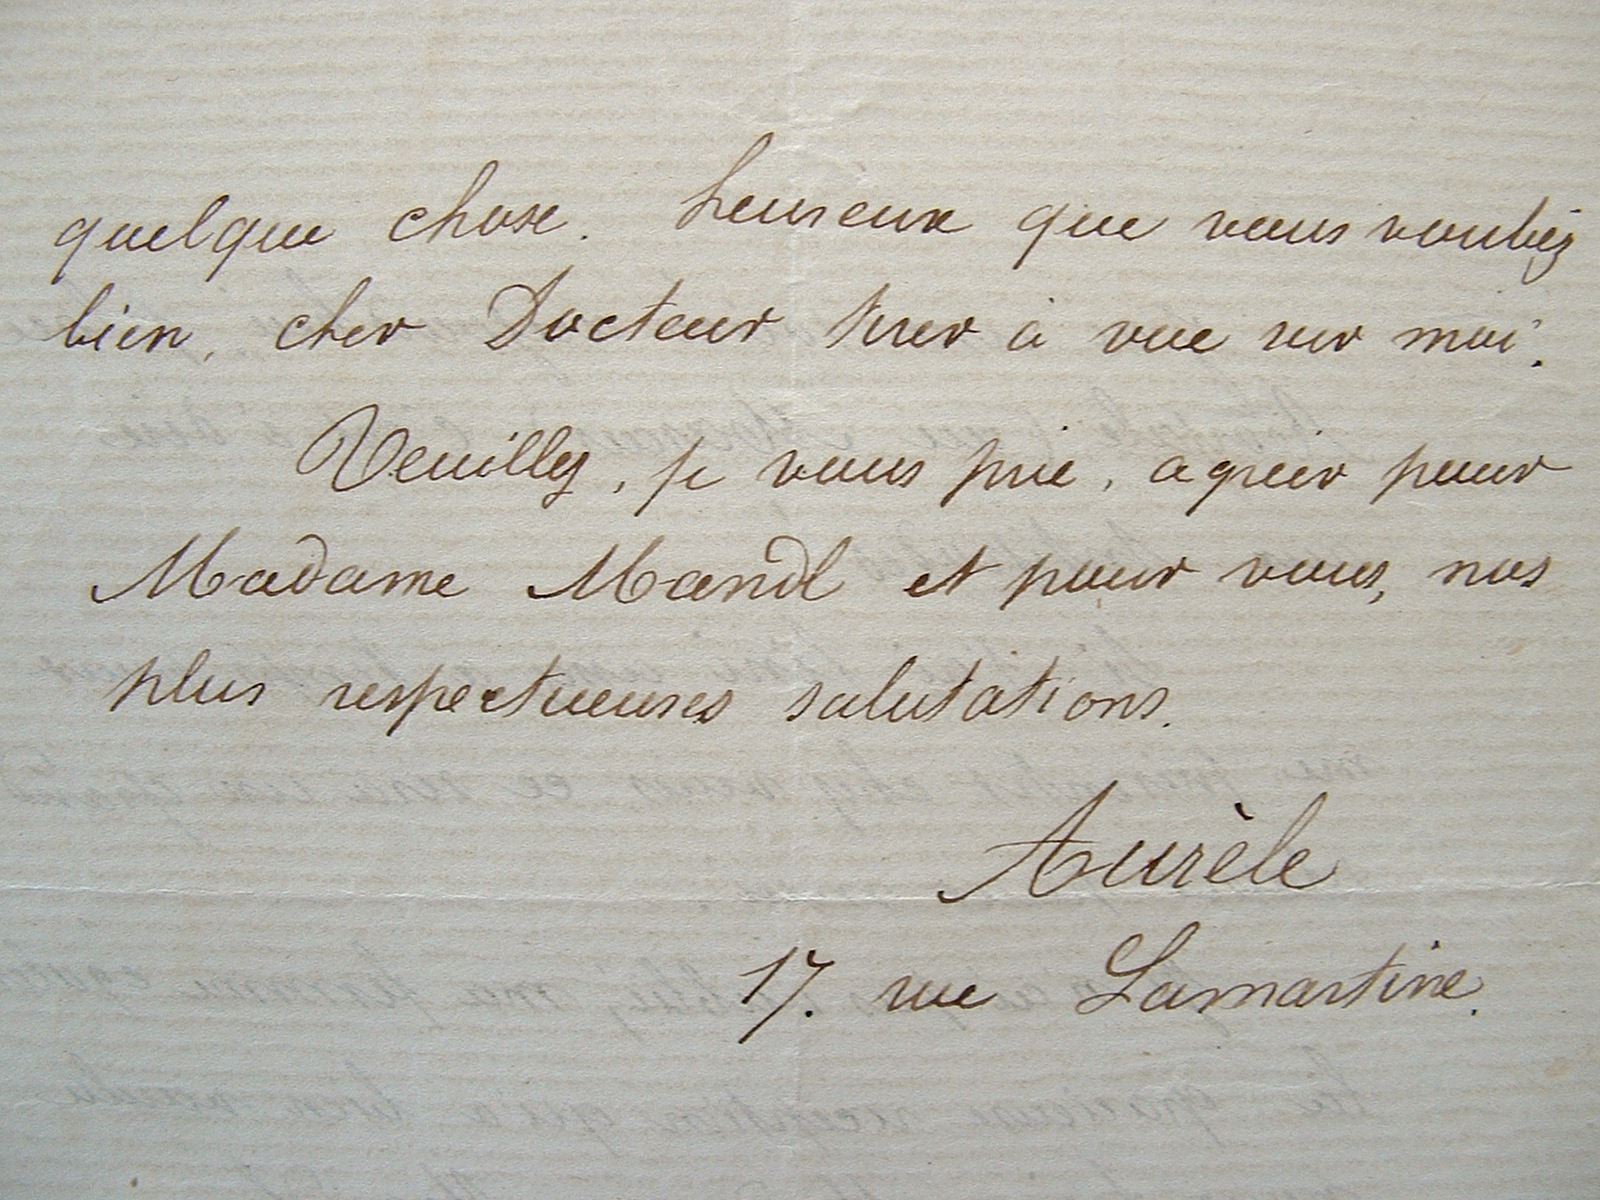 quelque chose. heureux que vous vouliez
bien, cher Docteur tirer à vue sur moi.
Veuillez, je vous prie, agréer pour
Madame Mandl et pour vous, nos
plus respectueuses salutations.
Aurèle
17. rue Lamartine.